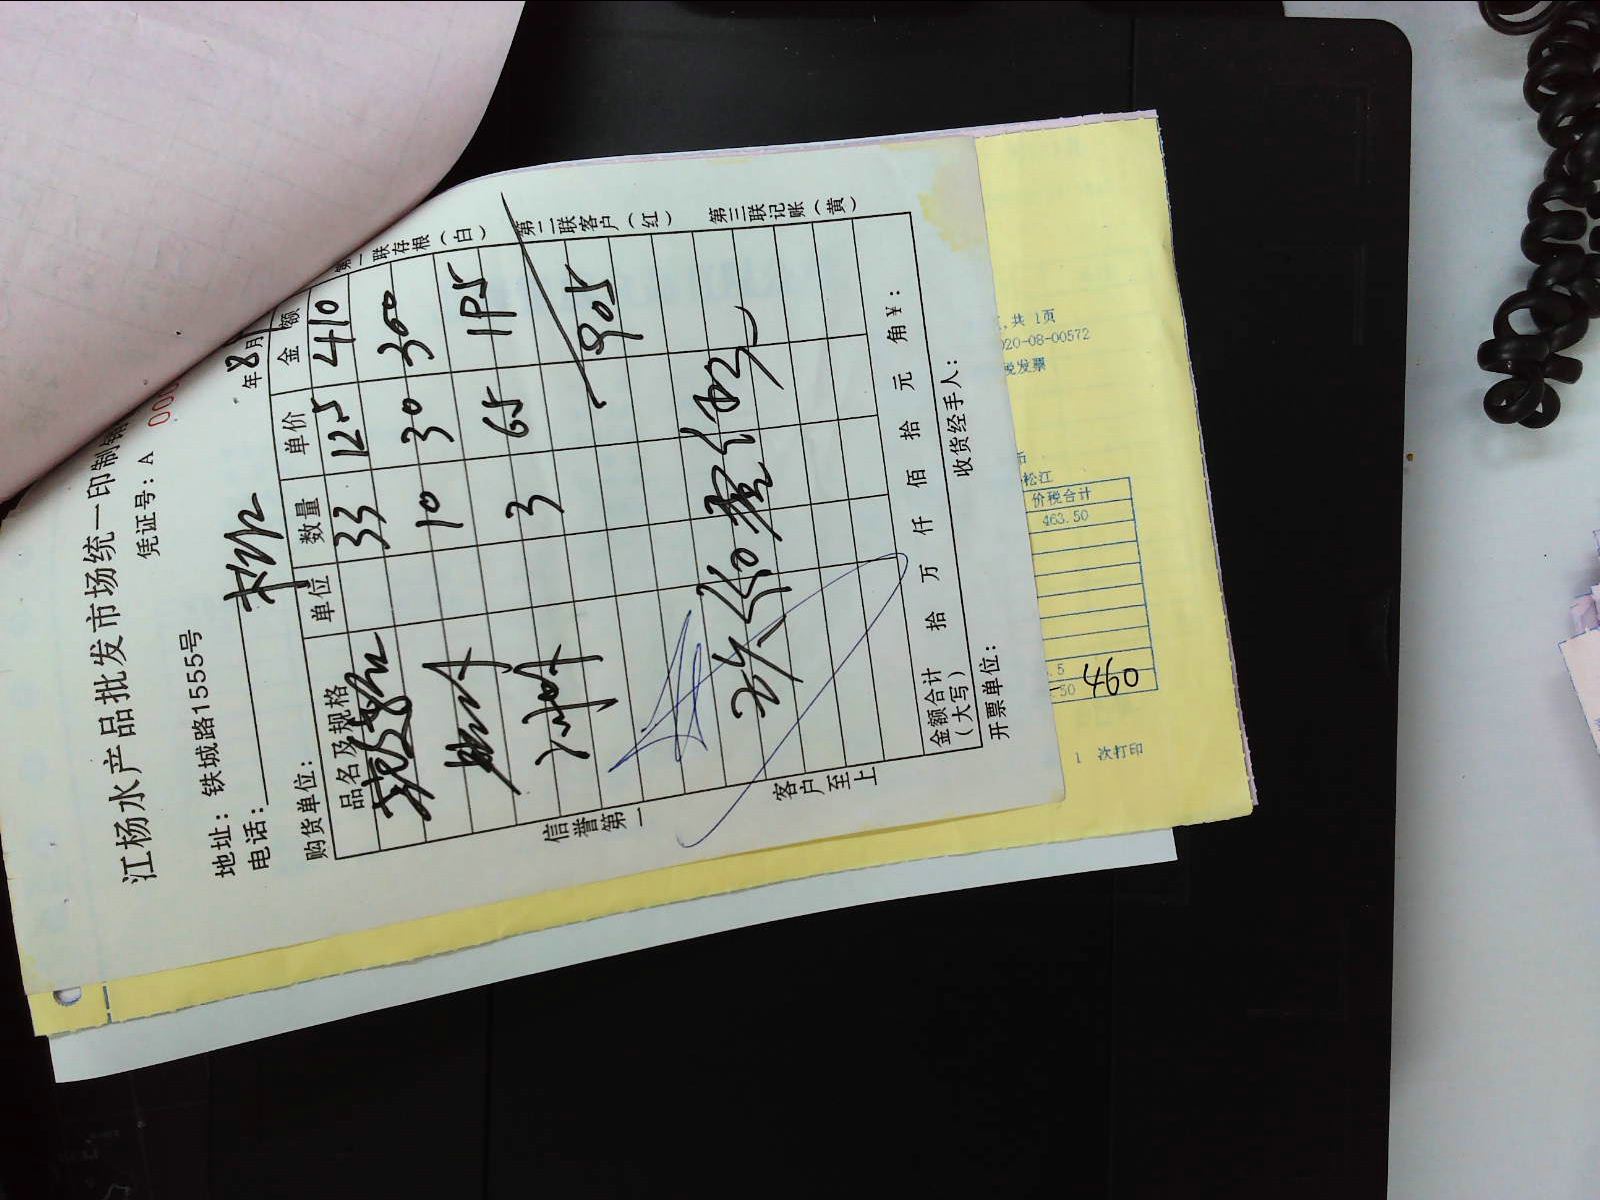 江杨水产品批发市场统一印制
凭证号：A 000
地址：铁城路1555号
电话：
年 8 月
购货单位：
品名及规格 单位 数量 单价 金额
33 12.5 410
10 30 300
3 65 195
905
金额合计（大写） 拾 万 仟 佰 拾 元 角 ¥：
开票单位： 收货经手人：
信誉第一
客户至上
第一联存根（白）
第二联客户（红）
第三联记账（黄）
页，共 1页
20-08-00572
税发票
松江
价税合计
463.50
.5
.50 460
1 次打印